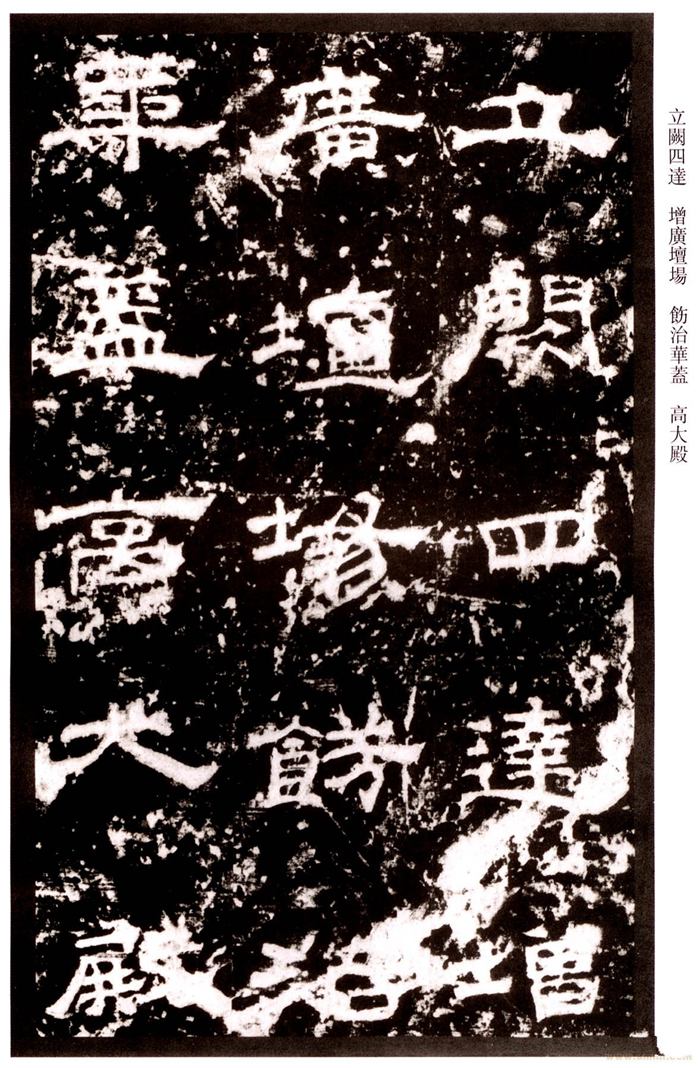 立闕四達 增廣壇場 飭治華蓋 高大殿
立闕四達增
廣壇場飭治
華蓋高大殿